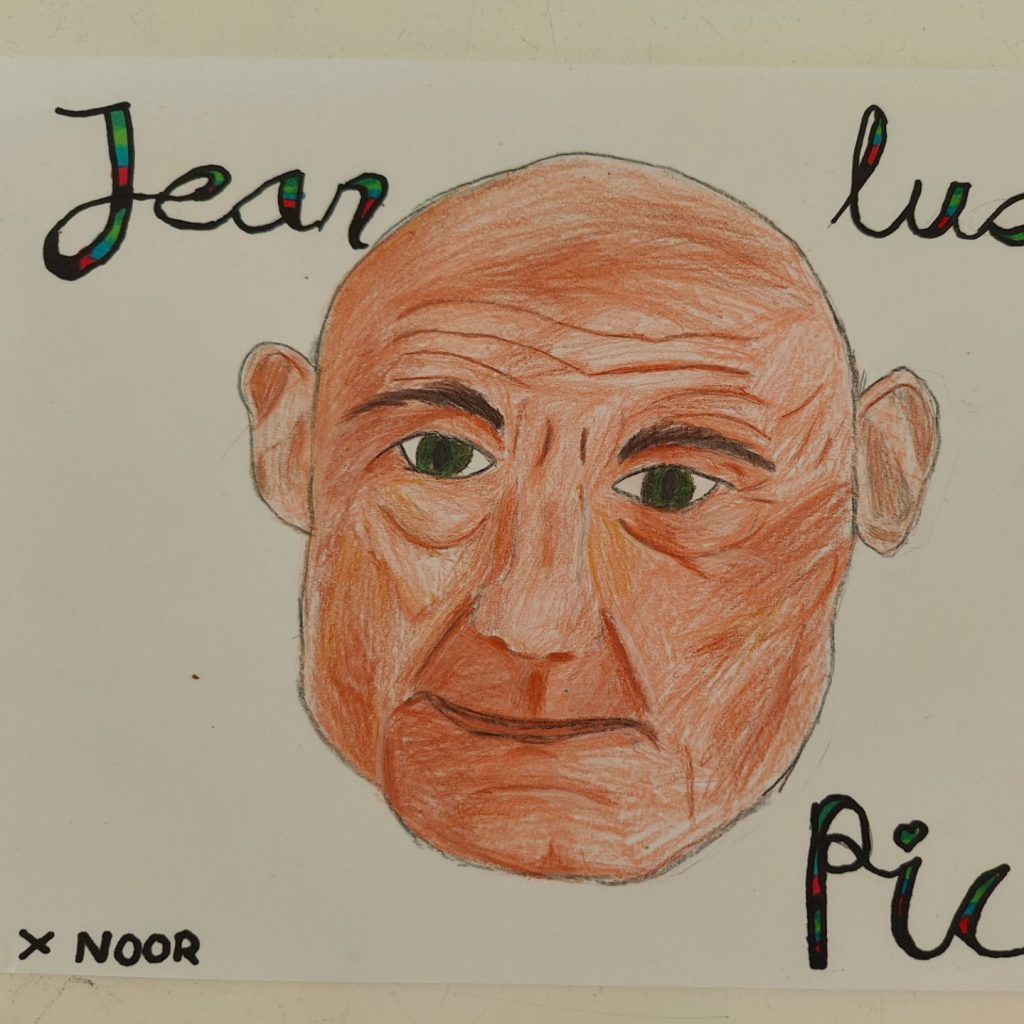 Jean luc
Pic
x NOOR